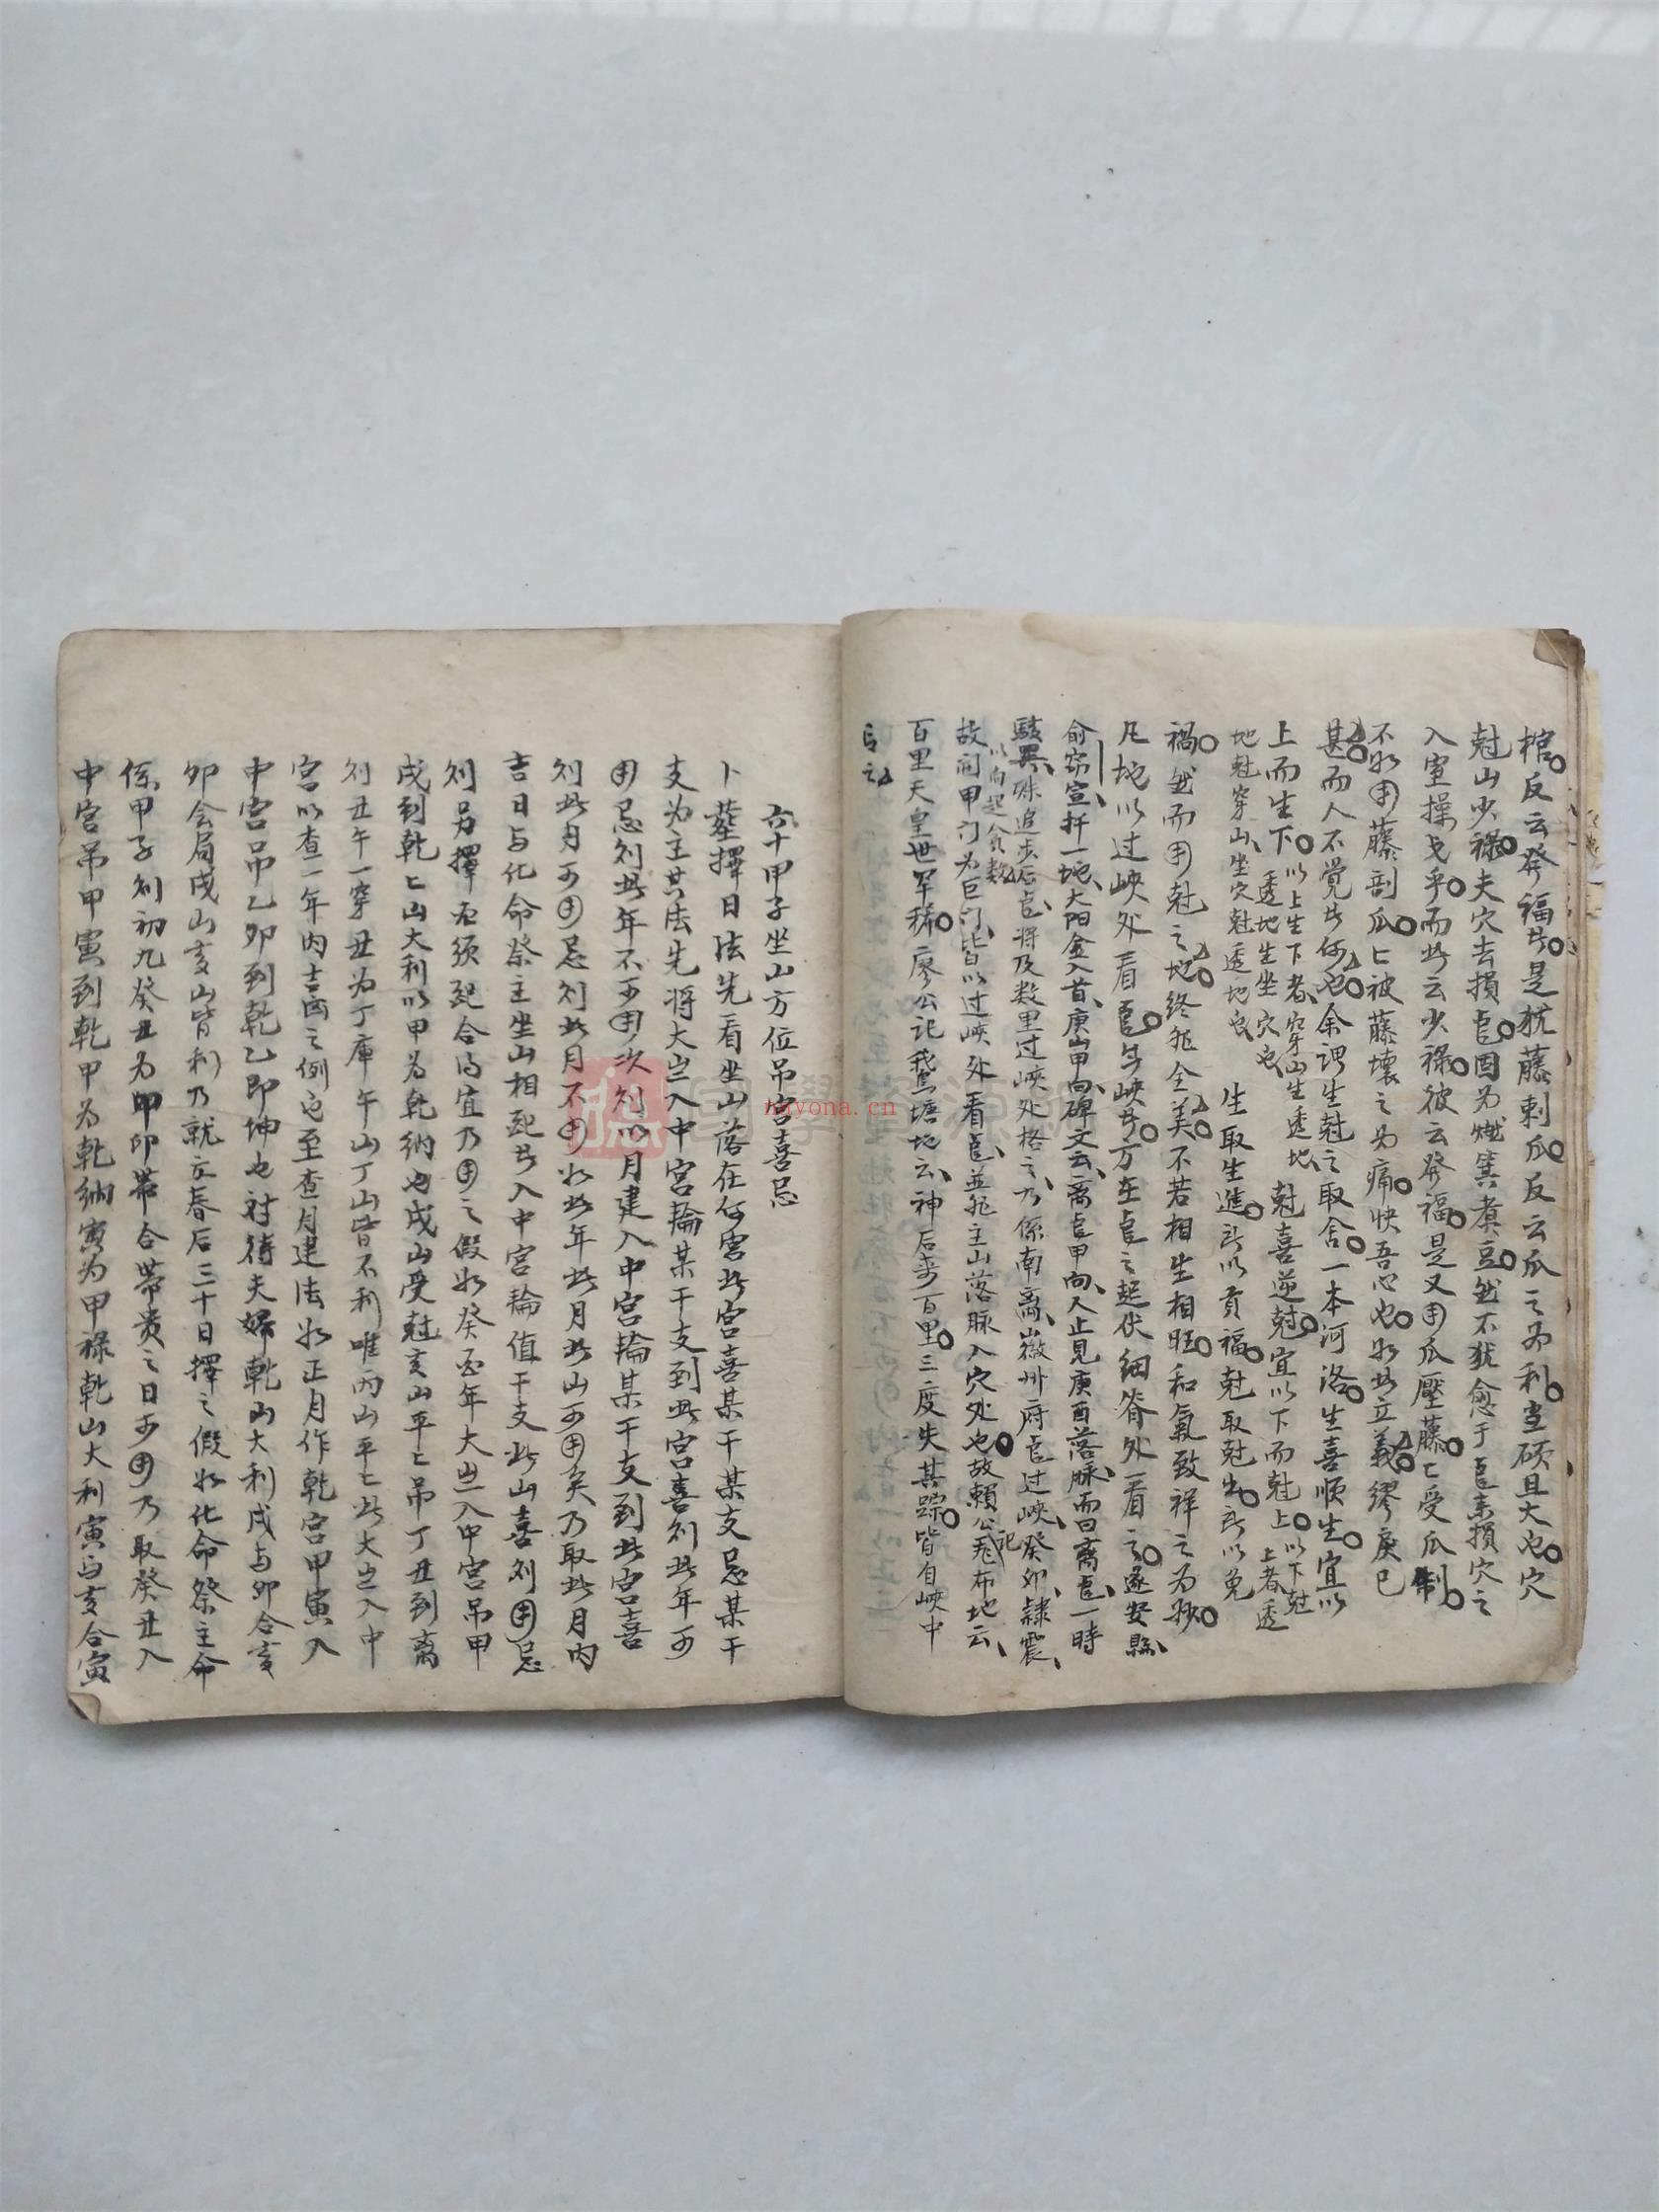 棺反云發福者是犹藤剌瓜反云瓜之为利当碩且大也穴
尅山少禄夫穴去損竜因为燃箕煮豆然不犹愈于竜来損穴之
入室操戈乎而此云少禄彼云發福是又用瓜壓藤七受瓜制
不如用藤剖瓜七被藤壊之为痛快吾心也如此立義繆戾已
甚而人不覺者何也余謂生尅之取舍一本河洛生喜順生宜以
上而生下以上生下者穿山生透地透地生坐穴也尅喜逆尅宜以下而尅上以下尅上者透
地尅穿山坐穴尅透地也生取生進所以貢福尅取尅出所以免
禍然而用尅之地终非全美不若相生相旺和氣致祥之为妙
凡地以过峽处看竜者峽者方在竜之起伏细脊处看之遂安縣
俞 宣扦一地大阳金入首庚山甲向碑文云离竜甲向人止見庚酉落脉而曰离竜一時
駭異殊追步后竜将及数里过峽处格之乃係南离徽州府竜过峽癸卯隷震
以向起分数
故间甲门为巨门皆以过峽处看竜並非主山落脉入穴处也故賴公記 布地云
百里天皇世罕稀廖公记 塘地云神后来百里三度失其踪皆自峽中
言之
六十甲子坐山方位吊宮喜忌
卜塟擇日法先看坐山落在何宮此宮喜某干某支忌某干
支为主其法先将大岁入中宮輪某干支到此宮喜则此年可
用忌则此年不可用次则以月建入中宮輪某干支到此宮喜
则此月可用忌则此月不用如此年此月此山可用矣乃取此月内
吉日与化命祭主坐山相配者入中宮輪值干支此山喜则用忌
则另擇必须配合得宜乃用之假如癸 年大岁入中宮吊甲
戌到乾七山大利以甲为乾纳也戌山受尅亥山平七吊丁丑到离
则丑午一穿丑为丁庫午山丁山皆不利唯丙山平七此大岁入中
宮以查一年内吉凶之例也至查月建法如正月作乾宮甲寅入
中宮吊乙卯到乾乙即坤也対待夫婦乾山大利戌与卯合亥
卯会局戌山亥山皆利乃就立春后三十日擇之假如化命祭主命
係甲子则初九癸丑为 卯帯合帯贵之日可用乃取癸丑入
中宮吊甲寅到乾甲为乾納寅为甲禄乾山大利寅与亥合寅